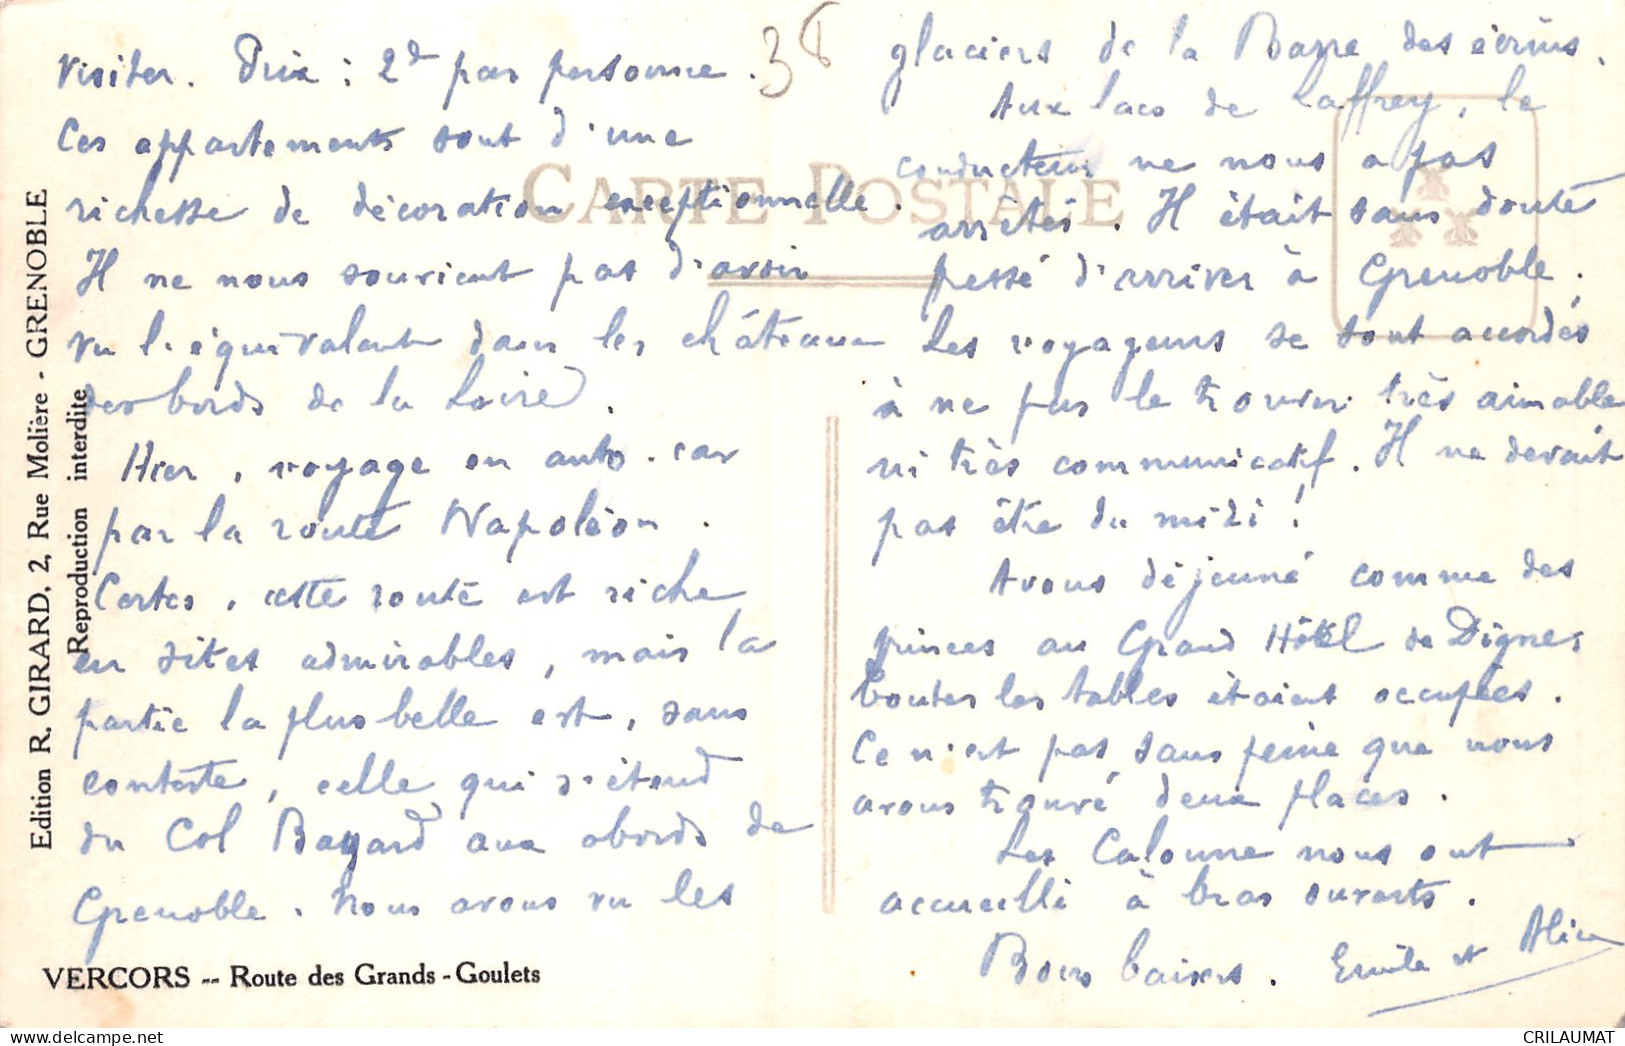 visiter. Prix : 2d par personne.
Ces appartements sont d'une
richesse de décoration exceptionnelle.
Il ne nous souvient pas d'avoir
vu l'équivalent dans les châteaux
des bords de la Loire.
Hier, voyage en auto-car
par la route Napoléon.
Certes, cette route est riche
en sites admirables, mais la
partie la plus belle est, sans
conteste, celle qui s'étend
du Col Bayard aux abords de
Grenoble. Nous avons vu les
38
glaciers de la Barre des écrins.
Aux lacs de Laffrey, le
conducteur ne nous a pas
arrêtés. Il était sans doute
pressé d'arriver à Grenoble.
Les voyageurs se sont accordés
à ne pas le trouver très aimable
ni très communicatif. Il ne devait
pas être du midi !
Avons déjeuné comme des
princes au Grand Hôtel de Digne,
toutes les tables étaient occupées.
Ce n'est pas sans peine que nous
avons trouvé deux places.
Les Calonne nous ont
accueilli à bras ouverts.
Bons baisers. Emile et Alice
CARTE POSTALE
Edition R. GIRARD, 2, Rue Molière - GRENOBLE
Reproduction interdite
VERCORS -- Route des Grands-Goulets
CRILAUMAT